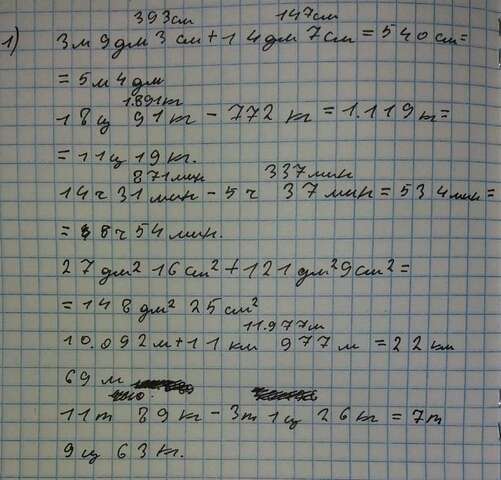 393см 147см
1) 3м 9дм 3см + 14дм 7см = 540см =
= 5м 4дм
1.891кг
18ц 91кг - 772кг = 1.119кг =
= 11ц 19кг.
871мин 337мин
14ч 31мин - 5ч 37мин = 534мин =
= 8ч 54мин.
27дм² 16см² + 121дм² 9см² =
= 148дм² 25см²
11.977м
10.092м + 11км 977м = 22км
69м
11т 89кг - 3т 1ц 26кг = 7т
9ц 63кг.